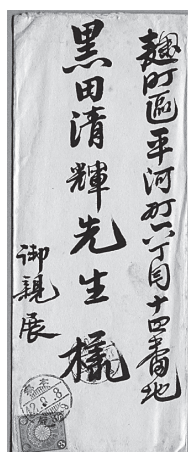 麹町區平河町六丁目十四番地
黒田清輝先生様
御親展